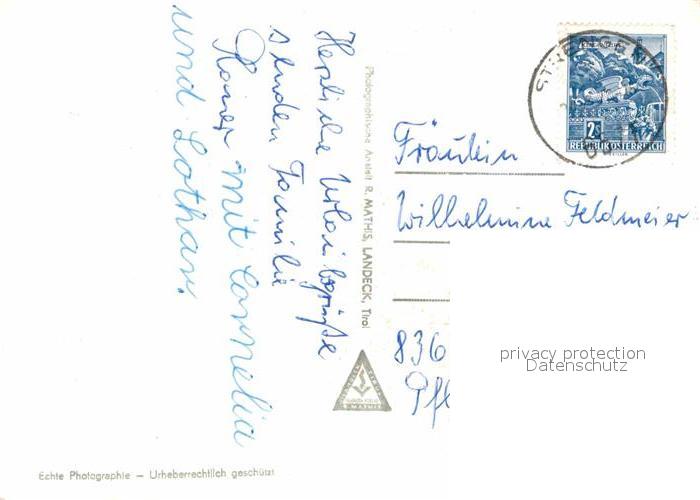 Herzliche Urlaubsgrüße
senden Familie
Rainer mit Cornelia
und Lothar.
Photographische Anstalt R. MATHIS, LANDECK, Tirol
R. MATHIS
2S
REPUBLIK ÖSTERREICH
STRENGEN
Fräulein
Wilhelmine Feldmeier
836
Pf
privacy protection
Datenschutz
Echte Photographie – Urheberrechtlich geschützt